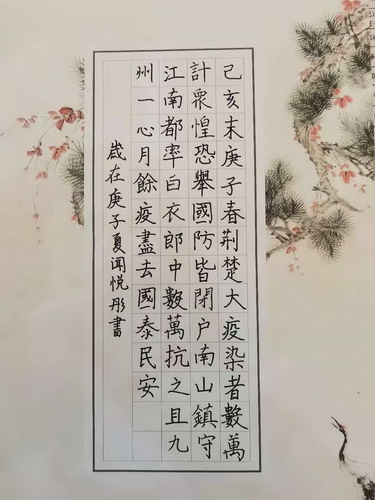 己亥末庚子春荆楚大疫染者數萬
計眾惶恐舉國防皆閉户南山鎮守
江南都率白衣郎中數萬抗之且九
州一心月餘疫盡去國泰民安
歲在庚子夏闻悦彤書